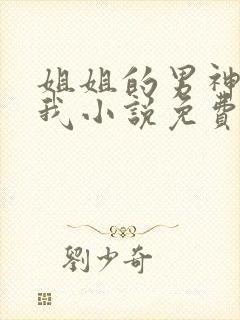 姐姐的男神
我小說免費
劉少奇